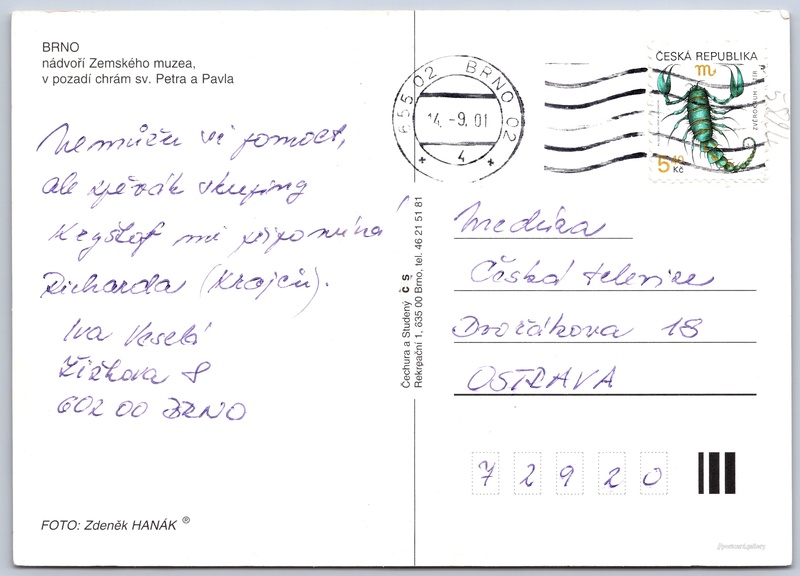 BRNO
nádvoří Zemského muzea,
v pozadí chrám sv. Petra a Pavla
Nemůžu si pomoct,
ale zpěvák skupiny
Kryštof mi připomíná
Richarda (Krajčů).
Iva Veselá
Žižkova 8
602 00 BRNO
FOTO: Zdeněk HANÁK ®
Čechura a Studený č s
Rekreační 1, 635 00 Brno, tel. 46 21 51 81
655 02 BRNO 02
14. -9. 01
4
ČESKÁ REPUBLIKA
m
ZVĚROKRUH
5,40
Kč
Medúza
Česká televize
Dvořákova 18
OSTRAVA
7 2 9 2 0
postcard.gallery